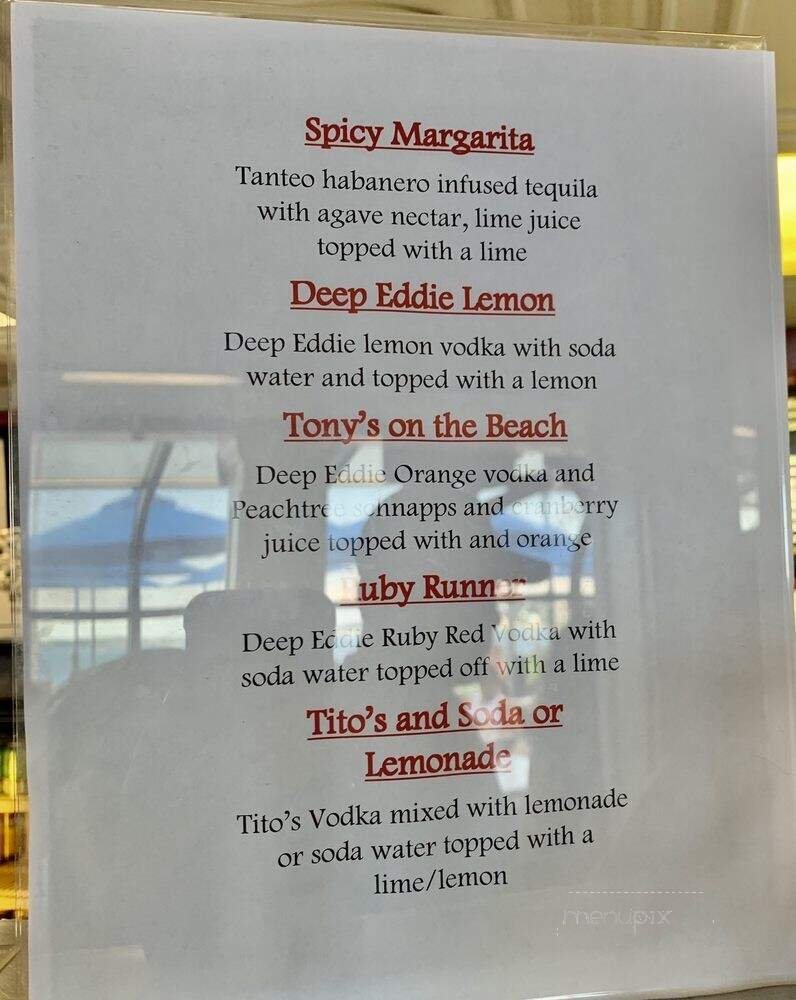 Spicy Margarita
Tanteo habanero infused tequila
with agave nectar, lime juice
topped with a lime
Deep Eddie Lemon
Deep Eddie lemon vodka with soda
water and topped with a lemon
Tony's on the Beach
Deep Eddie Orange vodka and
Peachtree schnapps and cranberry
juice topped with and orange
Ruby Runner
Deep Eddie Ruby Red Vodka with
soda water topped off with a lime
Tito's and Soda or
Lemonade
Tito's Vodka mixed with lemonade
or soda water topped with a
lime/lemon
menupix